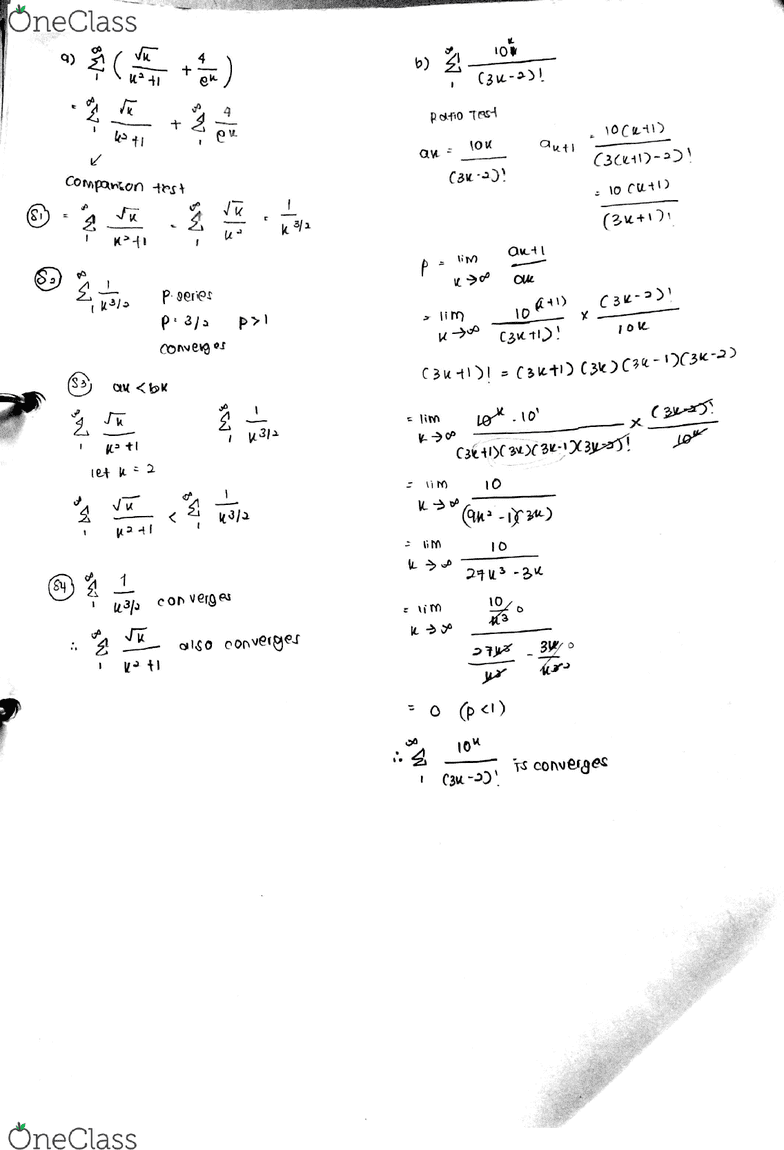 OneClass
a) ∞ Σ 1 ( √k / k²+1 + 4 / eᵏ )
= ∞ Σ 1 √k / k²+1 + ∞ Σ 1 4 / eᵏ
↙
Comparison test
(S1) = ∞ Σ 1 √k / k²+1 = ∞ Σ 1 √k / k² = 1 / k^3/2
(S2) ∞ Σ 1 1 / k^3/2 p-series
p = 3/2 p > 1
converges
(S3) ak < bk
∞ Σ 1 √k / k²+1 ∞ Σ 1 1 / k^3/2
let k = 2
∞ Σ 1 √k / k²+1 < ∞ Σ 1 1 / k^3/2
(S4) ∞ Σ 1 1 / k^3/2 converges
∴ ∞ Σ 1 √k / k²+1 also converges
b) ∞ Σ 1 10ᵏ / (3k-2)!
Ratio Test
ak = 10k / (3k-2)! ak+1 = 10(k+1) / (3(k+1)-2)!
= 10(k+1) / (3k+1)!
P = lim k→∞ ak+1 / ak
= lim k→∞ 10^(k+1) / (3k+1)! × (3k-2)! / 10k
(3k+1)! = (3k+1)(3k)(3k-1)(3k-2)
= lim k→∞ 10ᵏ . 10¹ / (3k+1)(3k)(3k-1)(3k-2)! × (3k-2)! / 10ᵏ
= lim k→∞ 10 / (9k²-1)(3k)
= lim k→∞ 10 / 27k³-3k
= lim k→∞ 10/k³ 0 / 27k³/k³ - 3k/k³ 0
= 0 (p<1)
∴ ∞ Σ 1 10ᵏ / (3k-2)! is converges
OneClass